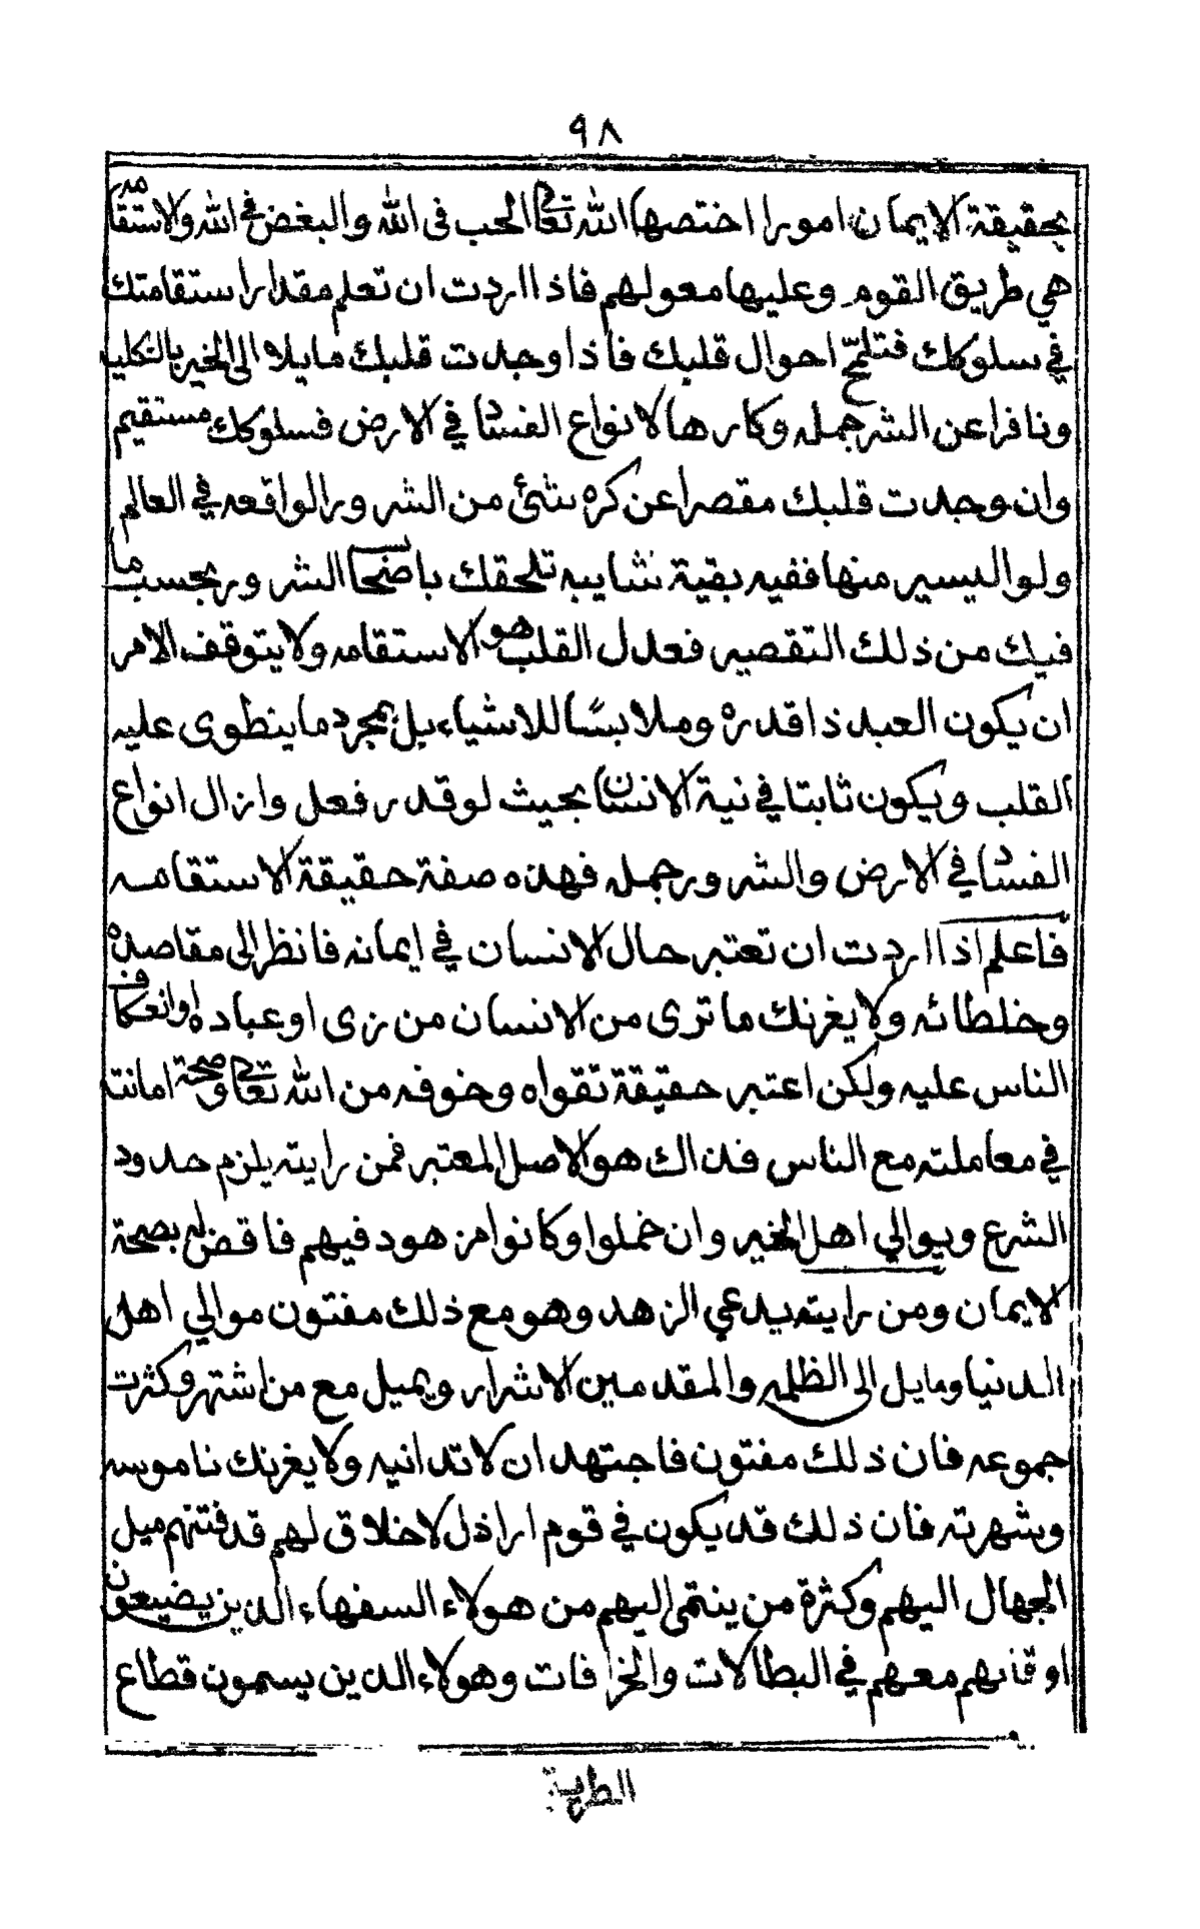 ٩٨
بحقيقة الايمان امورا اختصها الله تعالى الحب فى الله والبغض في الله والاستقامه
هي طريق القوم وعليها معولهم فاذا اردت ان تعلم مقدار استقامتك
في سلوكك فتلمح احوال قلبك فاذا وجدت قلبك مايلا الى الخير بالكليه
ونافرا عن الشر جمله وكارها لانواع الفساد في الارض فسلوكك مستقيم
وان وجدت قلبك مقصرا عن كره شئ من الشرور الواقعه في العالم
ولو اليسير منها ففيه بقية شايبه تلحقك باصحا الشرور بحسب ما
فيك من ذلك التقصير فعدل القلب هو الاستقامه ولا يتوقف الامر
ان يكون العبد ذا قدره وملابسًا للاشياء بل بمجرد ما ينطوى عليه
القلب ويكون ثابتا في نية الانسان بحيث لو قدر فعل وازال انواع
الفساد في الارض والشرور جمله فهذه صفة حقيقة الاستقامه
فاعلم اذا اردت ان تعتبر حال الانسان في ايمانه فانظر الى مقاصده
وخلطائه ولا يغرنك ما ترى من الانسان من زى او عباده او انعكاف
الناس عليه ولكن اعتبر حقيقة تقواه وخوفه من الله تعالى وصحة امانته
في معاملته مع الناس فذاك هو الاصل المعتبر فمن رايته يلزم حدود
الشرع ويوالي اهل الخير وان خملوا وكانوا مزهود فيهم فاقض له بصحة
الايمان ومن رايته يدعي الزهد وهو مع ذلك مفتون موالي اهل
الدنيا ومايل الى الظلمه والمقدمين الاشرار ويميل مع من اشتهر وكثرت
جموعه فان ذلك مفتون فاجتهد ان لا تدانيه ولا يغرنك ناموسه
وشهرته فان ذلك قد يكون في قوم اراذل لاخلاق لهم قد فتنهم ميل
الجهال اليهم وكثرة من ينتمى اليهم من هولاء السفهاء الذين يضيعون
اوقاتهم معهم في البطالات والخرافات وهولاء الذين يسمون قطاع
الطريق